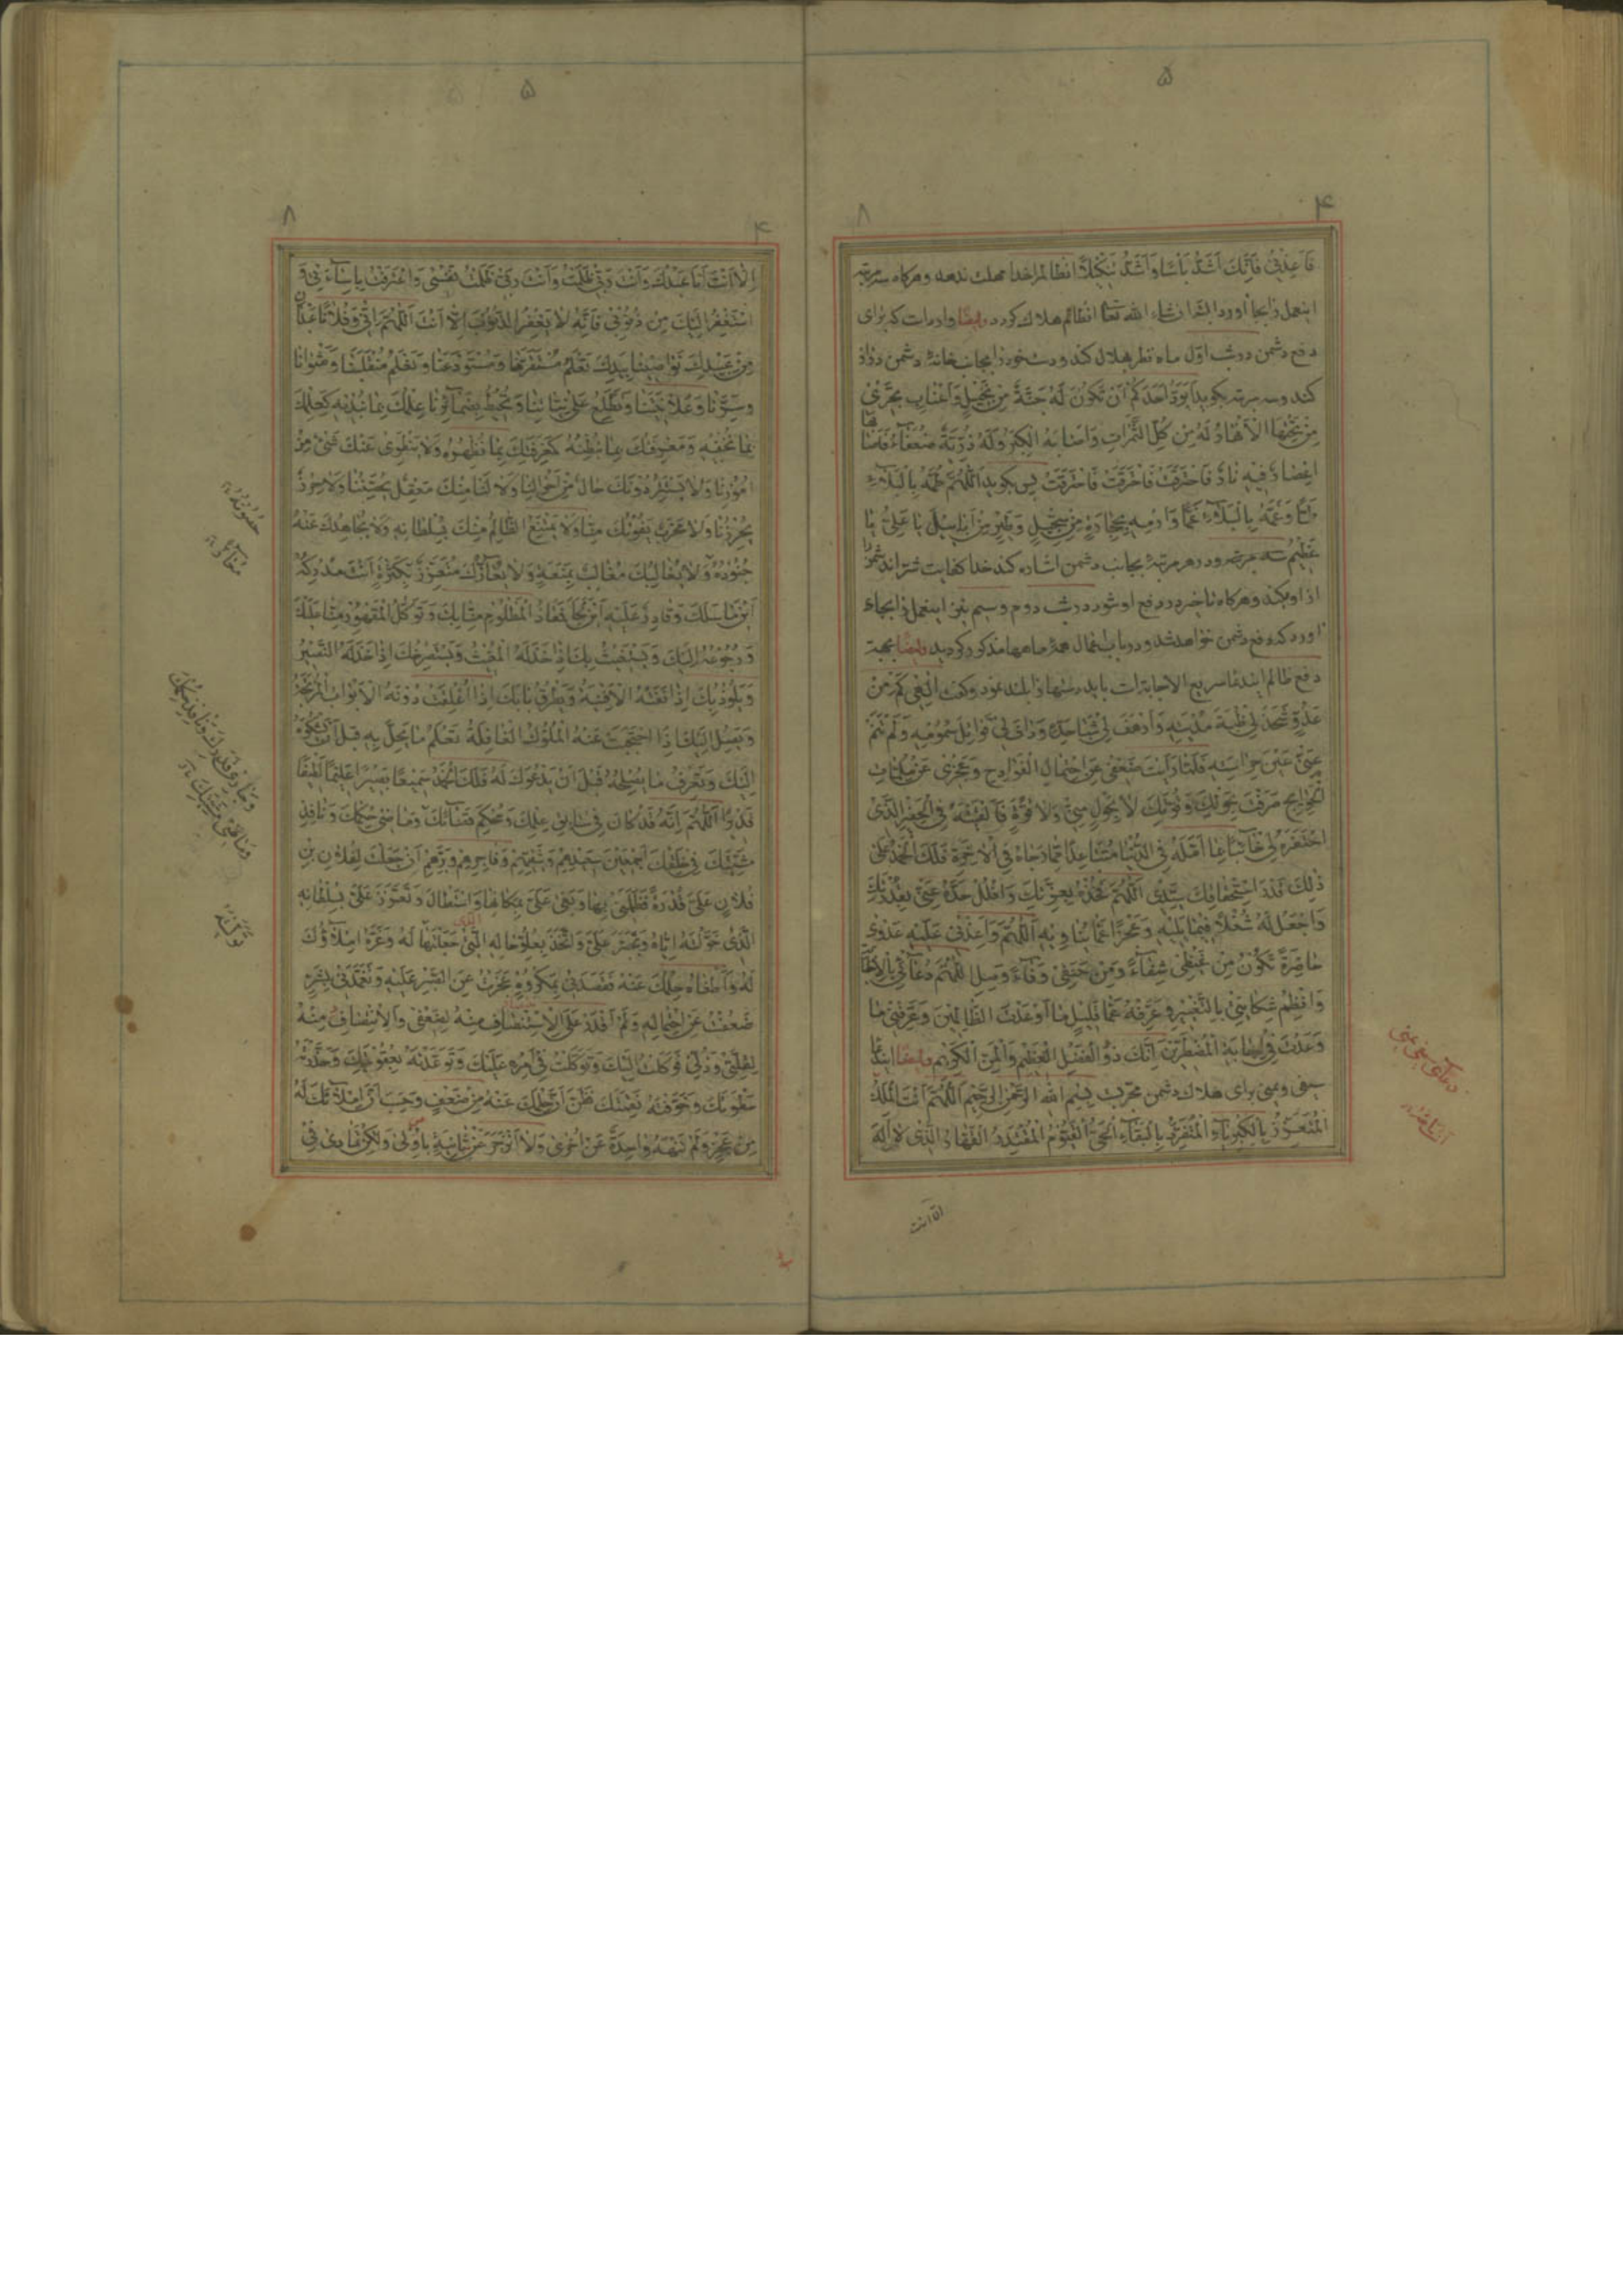 ۵
۴
۸
فَاَعِذْنِی فَاِنَّكَ اَشَدُّ بَأْسًا وَاَشَدُّ تَنْكِیلًا انظالم را خدا مهلت ندهد و هرکاه سه مرتبه
اینعمل را بجا اورد البته انشاء الله تعا انظالم هلاك كردد ایضًا وادرمات که برای
دفع دشمن در شب اوّل ماه نظر بهلال کند و دست خود را بجانب خانهٔ دشمن دراز
کند و سه مرتبه بکوید اَیَوَدُّ اَحَدُكُمْ اَنْ تَكُونَ لَهُ جَنَّةٌ مِنْ نَخِیلٍ وَاَعْنَابٍ تَجْرِی
مِنْ تَحْتِهَا الْاَنْهَارُ لَهُ فِیهَا مِنْ كُلِّ الثَّمَرَاتِ وَاَصَابَهُ الْكِبَرُ وَلَهُ ذُرِّیَّةٌ ضُعَفَاءُ فَاَصَابَهَا
اِعْصَارٌ فِیهِ نَارٌ فَاحْتَرَقَتْ فَاحْتَرَقَتْ فَاحْتَرَقَتْ پس بکوید اَللّٰهُمَّ طُمَّهُ بِالْبَلَاءِ
طَمًّا وَغُمَّهُ بِالْبَلَاءِ غَمًّا وَارْمِهِ بِحِجَارَةٍ مِنْ سِجِّیلٍ وَطَیْرٍ مِنْ اَبَابِیلَ یَا عَلِیُّ یَا
عَظِیمُ سه مرتبه و در هر مرتبهٔ بجانب دشمن اشاره کند خدا کفایت شرّ اندشمن را
از او بکند و هرکاه تاخیر در دفع او شود در شب دوم و سیم نیز اینعمل را بجاء
اورد که دفع دشمن خواهد شد و در باب اعمال همهٔ ماهها مذکور کردید ایضًا بجهة
دفع ظالم ایندعا سریع الاجابة است باید دستها را بلند نمود و کفت اِلٰهِی كَمْ مِنْ
عَدُوٍّ شَحَذَ لِی ظُبَةَ مُدْیَتِهِ وَاَرْهَفَ لِی شَبَا حَدِّهِ وَدَافَ لِی قَوَاتِلَ سُمُومِهِ وَلَمْ تَنَمْ
عَنِّی عَیْنُ حِرَاسَتِهِ فَلَمَّا رَاَیْتَ ضَعْفِی عَنِ احْتِمَالِ الْفَوَادِحِ وَعَجْزِی عَنْ مُلِمَّاتِ
الْجَوَائِحِ صَرَفْتَ بِحَوْلِكَ وَقُوَّتِكَ لَا بِحَوْلٍ مِنِّی وَلَا قُوَّةٍ فَاَلْقَیْتَهُ فِی الْحَفِیرِ الَّذِی
احْتَفَرَهُ لِی خَائِبًا مِمَّا اَمَّلَهُ فِی الدُّنْیَا مُتَبَاعِدًا مِمَّا رَجَاهُ فِی الْاٰخِرَةِ فَلَكَ الْحَمْدُ عَلَی
ذٰلِكَ قَدْرَ اسْتِحْقَاقِكَ سَیِّدِی اَللّٰهُمَّ فَخُذْهُ بِعِزَّتِكَ وَافْلُلْ حَدَّهُ عَنِّی بِقُدْرَتِكَ
وَاجْعَلْ لَهُ شُغْلًا فِیمَا یَلِیهِ وَعَجْزًا عَمَّا یُنَاوِیهِ اَللّٰهُمَّ وَاَعِذْنِی عَلَیْهِ عَدْوٰی
حَاضِرَةً تَكُونُ مِنْ غَیْظِی شِفَاءً وَمِنْ حَنَقِی وَفَاءً وَصِلِ اللّٰهُمَّ دُعَائِی بِالْاِجَابَةِ
وَانْظِمْ شِكَایَتِی بِالتَّغْیِیرِ وَعَرِّفْهُ عَمَّا قَلِیلٍ مَا اَوْعَدْتَ الظَّالِمِینَ وَعَرِّفْنِی مَا
وَعَدْتَ فِی اِجَابَةِ الْمُضْطَرِّینَ اِنَّكَ ذُو الْفَضْلِ الْعَظِیمِ وَالْمَنِّ الْكَرِیمِ ایضًا ایندعا
سیفی و یمنی برای هلاك دشمن مجرّب بِسْمِ اللّٰهِ الرَّحْمٰنِ الرَّحِیمِ اَللّٰهُمَّ اَنْتَ الْمَلِكُ
الْمُتَعَزِّزُ بِالْكِبْرِیَاءِ الْمُتَفَرِّدُ بِالْبَقَاءِ الْحَیُّ الْقَیُّومُ الْمُقْتَدِرُ الْقَهَّارُ الَّذِی لَا اِلٰهَ
اِلّا اَنْتَ
دعای سیفی یمنی
۵
۴
۸
اِلَّا اَنْتَ اَنَا عَبْدُكَ وَاَنْتَ رَبِّی ظَلَمْتُ نَفْسِی وَاعْتَرَفْتُ بِاِسَاءَتِی وَ
اَسْتَغْفِرُ اِلَیْكَ مِنْ ذُنُوبِی فَاِنَّهُ لَا یَغْفِرُ الذُّنُوبَ اِلَّا اَنْتَ اَللّٰهُمَّ اِنِّی وَفُلَانًا عَبْدَانِ
مِنْ عَبِیدِكَ نَوَاصِینَا بِیَدِكَ تَعْلَمُ مُسْتَقَرَّنَا وَمُسْتَوْدَعَنَا وَتَعْلَمُ مُنْقَلَبَنَا وَمَثْوَانَا
وَسِرَّنَا وَعَلَانِیَتَنَا وَتَطَّلِعُ عَلَی نِیَّاتِنَا وَتُحِیطُ بِضَمَائِرِنَا عِلْمُكَ بِمَا نُبْدِیهِ كَعِلْمِكَ
بِمَا نُخْفِیهِ وَمَعْرِفَتُكَ بِمَا نُبْطِنُهُ كَمَعْرِفَتِكَ بِمَا نُظْهِرُهُ وَلَا یَنْطَوِی عَنْكَ شَیْءٌ مِنْ
اُمُورِنَا وَلَا یَسْتَتِرُ دُونَكَ حَالٌ مِنْ اَحْوَالِنَا وَلَا لَنَا مِنْكَ مَعْقِلٌ یُحَصِّنُنَا وَلَا حِرْزٌ
یُحْرِزُنَا وَلَا مَهْرَبٌ یَفُوتُكَ مِنَّا وَلَا یَمْتَنِعُ الظَّالِمُ مِنْكَ بِسُلْطَانِهِ وَلَا یُجَاهِدُكَ عَنْهُ
جُنُودُهُ وَلَا یُغَالِبُكَ مُغَالِبٌ بِمَنَعَةٍ وَلَا یُعَازُّكَ مُتَعَزِّزٌ بِكَثْرَةٍ اَنْتَ مُدْرِكُهُ
اَیْنَ مَا سَلَكَ وَقَادِرٌ عَلَیْهِ اَیْنَ لَجَاَ فَمَعَاذُ الْمَظْلُومِ مِنَّا بِكَ وَتَوَكُّلُ الْمَقْهُورِ مِنَّا عَلَیْكَ
وَرُجُوعُهُ اِلَیْكَ وَیَسْتَغِیثُ بِكَ اِذَا خَذَلَهُ الْمُغِیثُ وَیَسْتَصْرِخُكَ اِذَا خَذَلَهُ النَّصِیرُ
وَیَلُوذُ بِكَ اِذَا نَفَتْهُ الْاَفْنِیَةُ وَیَطْرُقُ بَابَكَ اِذَا اُغْلِقَتْ دُونَهُ الْاَبْوَابُ الْمُرْتَجَةُ
وَیَصِلُ اِلَیْكَ اِذَا احْتَجَبَتْ عَنْهُ الْمُلُوكُ الْغَافِلَةُ تَعْلَمُ مَا یَحِلُّ بِهِ قَبْلَ اَنْ یَشْكُوَهُ
اِلَیْكَ وَتَعْرِفُ مَا یُصْلِحُهُ قَبْلَ اَنْ یَدْعُوَكَ لَهُ فَلَكَ الْحَمْدُ سَمِیعًا بَصِیرًا عَلِیمًا لَطِیفًا
قَدِیرًا اَللّٰهُمَّ اِنَّهُ قَدْ كَانَ فِی سَابِقِ عِلْمِكَ وَمُحْكَمِ قَضَائِكَ وَمَاضِی حُكْمِكَ وَنَافِذِ
مَشِیَّتِكَ فِی خَلْقِكَ اَجْمَعِینَ سَعِیدِهِمْ وَشَقِیِّهِمْ وَفَاجِرِهِمْ وَبَرِّهِمْ اَنْ جَعَلْتَ لِفُلَانِ بْنِ
فُلَانٍ عَلَیَّ قُدْرَةً فَظَلَمَنِی بِهَا وَبَغَی عَلَیَّ بِمَكَانِهَا وَاسْتَطَالَ وَتَعَزَّزَ عَلَیَّ بِسُلْطَانِهِ
الَّذِی خَوَّلْتَهُ اِیَّاهُ وَتَجَبَّرَ عَلَیَّ وَ بِعُلُوِّ حَالِهِ الَّتِی جَعَلْتَهَا لَهُ وَغَرَّهُ اِمْلَاؤُكَ
لَهُ وَاَطْغَاهُ حِلْمُكَ عَنْهُ فَقَصَدَنِی بِمَكْرُوهٍ عَجَزْتُ عَنِ الصَّبْرِ عَلَیْهِ وَتَعَمَّدَنِی بِشَرٍّ
ضَعُفْتُ عَنِ احْتِمَالِهِ وَلَمْ اَقْدِرْ عَلَی الْاِسْتِنْصَافِ مِنْهُ لِضَعْفِی وَالْاِنْتِصَافِ مِنْهُ
لِقِلَّتِی وَذُلِّی فَوَكَلْتُهُ اِلَیْكَ وَتَوَكَّلْتُ فِی اَمْرِهِ عَلَیْكَ وَتَوَعَّدْتُهُ بِعُقُوبَتِكَ وَحَذَّرْتُهُ
سَطْوَتَكَ وَخَوَّفْتُهُ نَقِمَتَكَ فَظَنَّ اَنَّ حِلْمَكَ عَنْهُ مِنْ ضَعْفٍ وَحَسِبَ اَنَّ اِمْلَائَكَ لَهُ
مِنْ عَجْزٍ وَلَمْ تَنْهَهُ وَاحِدَةٌ عَنْ اُخْرٰی وَلَا انْزَجَرَ عَنْ ثَانِیَةٍ بِاُولٰی وَلٰكِنَّهُ تَمَادٰی فِی